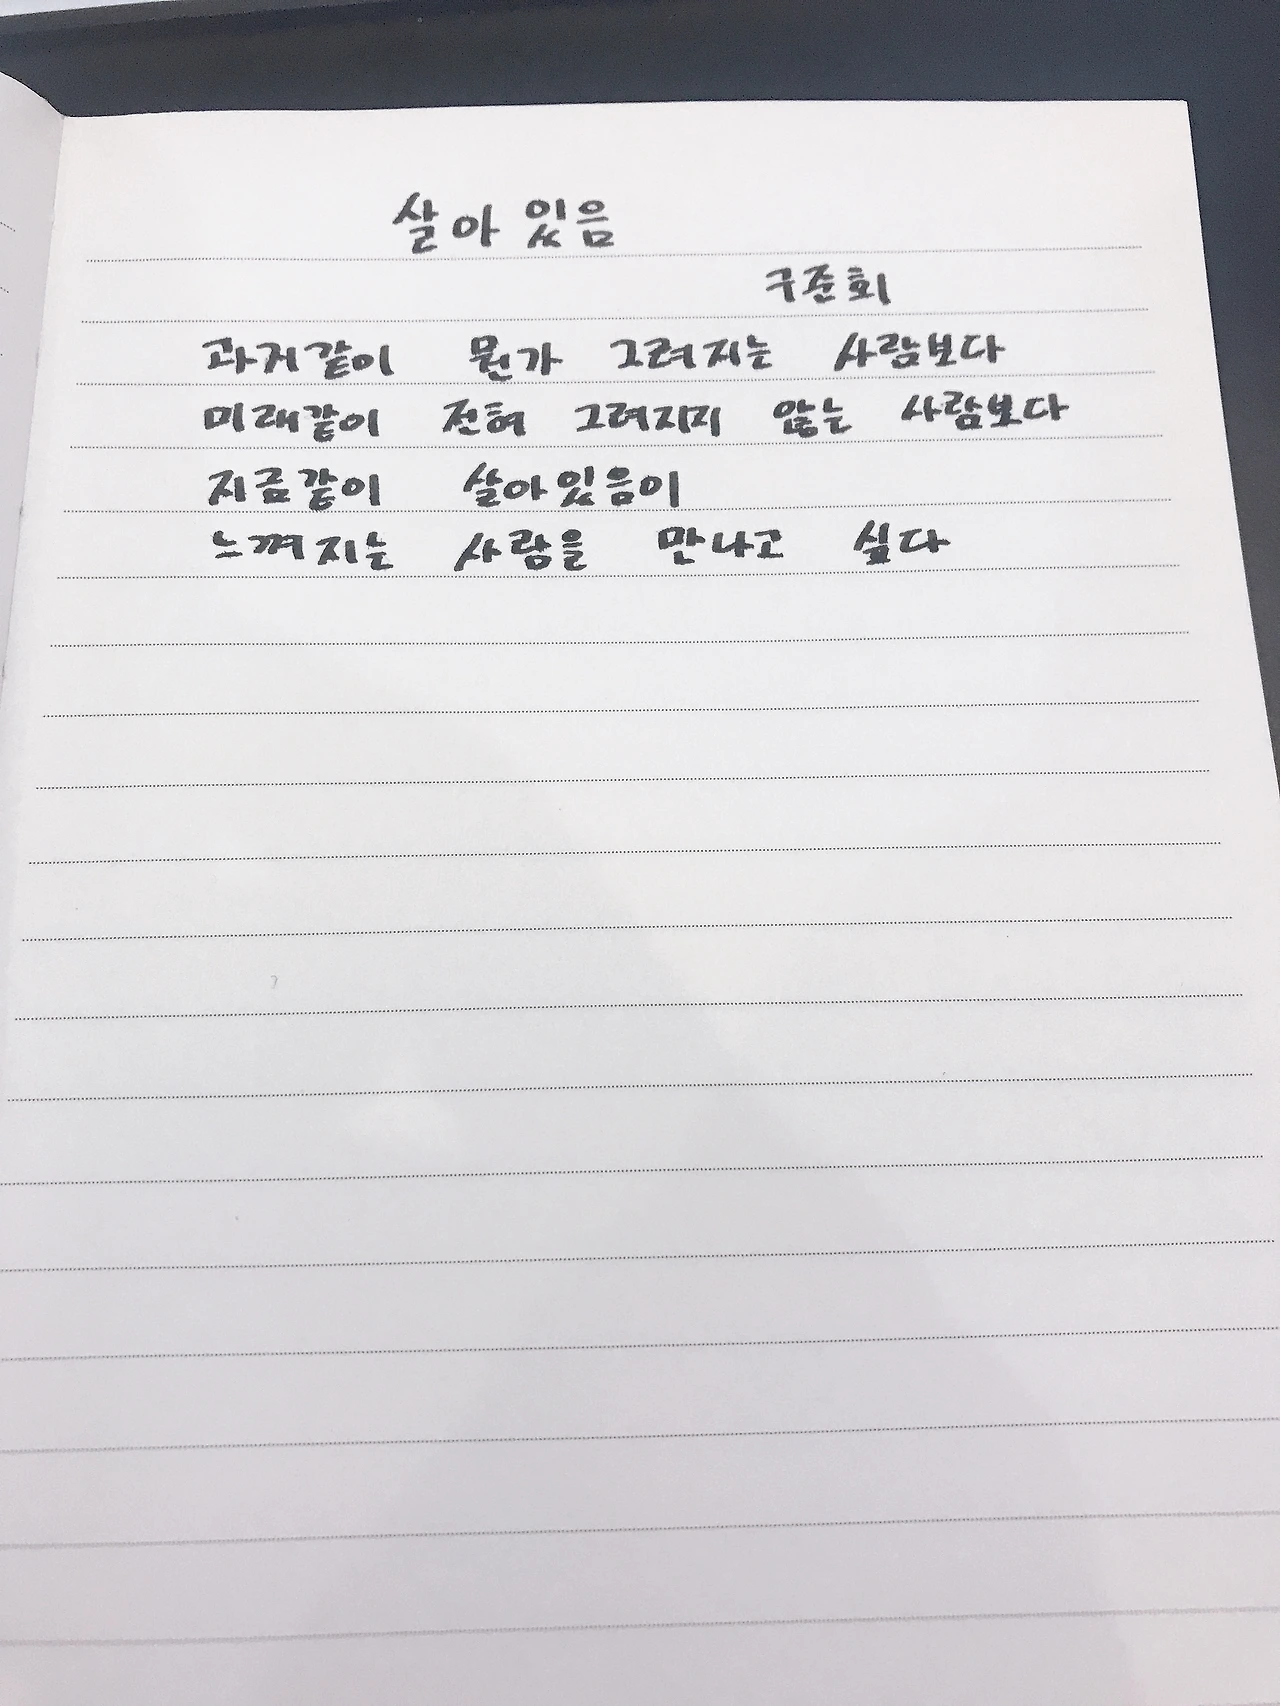 살아있음
구준회
과거같이 뭔가 그려지는 사람보다
미래같이 전혀 그려지지 않는 사람보다
지금같이 살아있음이
느껴지는 사람을 만나고 싶다